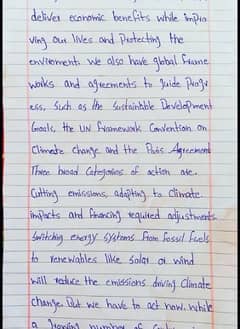 deliver economic benefits while impro
ving our lives and protecting the
enviroment. we also have global frame
works and agreements to guide progr
ess, such as the Sustainable Development
Goals, the UN Framework Convention on
Climate change and the Paris Agreement
Three broad Categories of action are.
Cutting emissions, adapting to climate
impacts and financing required adjustments.
Switching energy systems from fossil fuels
to renewables like solar or wind
will reduce the emissions driving climate
change. But we have to act now. While
a growing number of